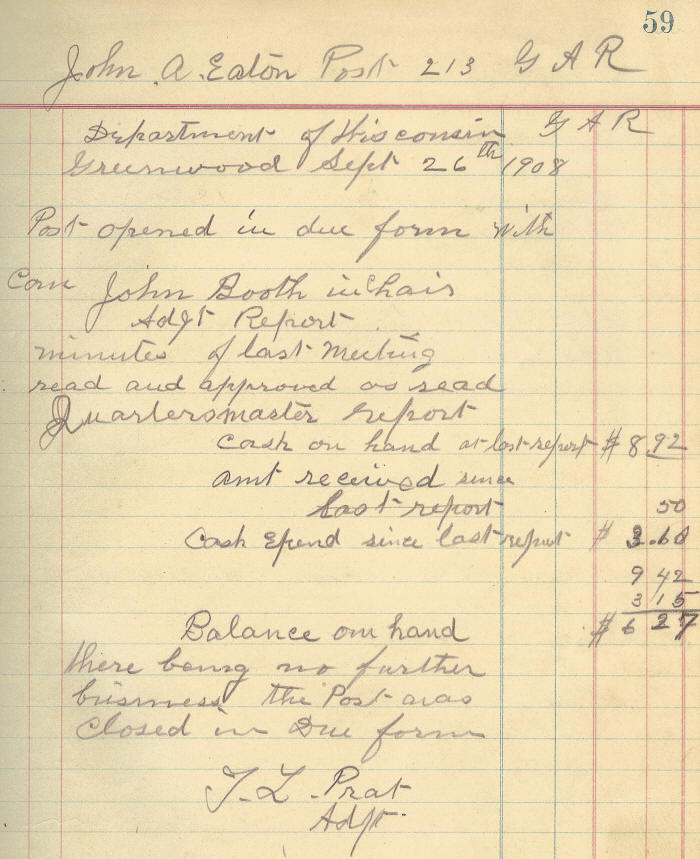 59
John A. Eaton Post 213 G A R
Department of Wisconsin G A R
Greenwood Sept 26th 1908
Post opened in due form with
Com John Booth in Chair
Adjt Report
minutes of last Meeting
read and approved as read
Quartersmaster Report
Cash on hand at last report $ 8.92
amt received since
last report 50
Cash Epend since last report $ 3.60
9 42
3 15
Balance on hand $ 6 27
there being no further
business the Post was
Closed in Due form
T. L. Prat
Adjt.